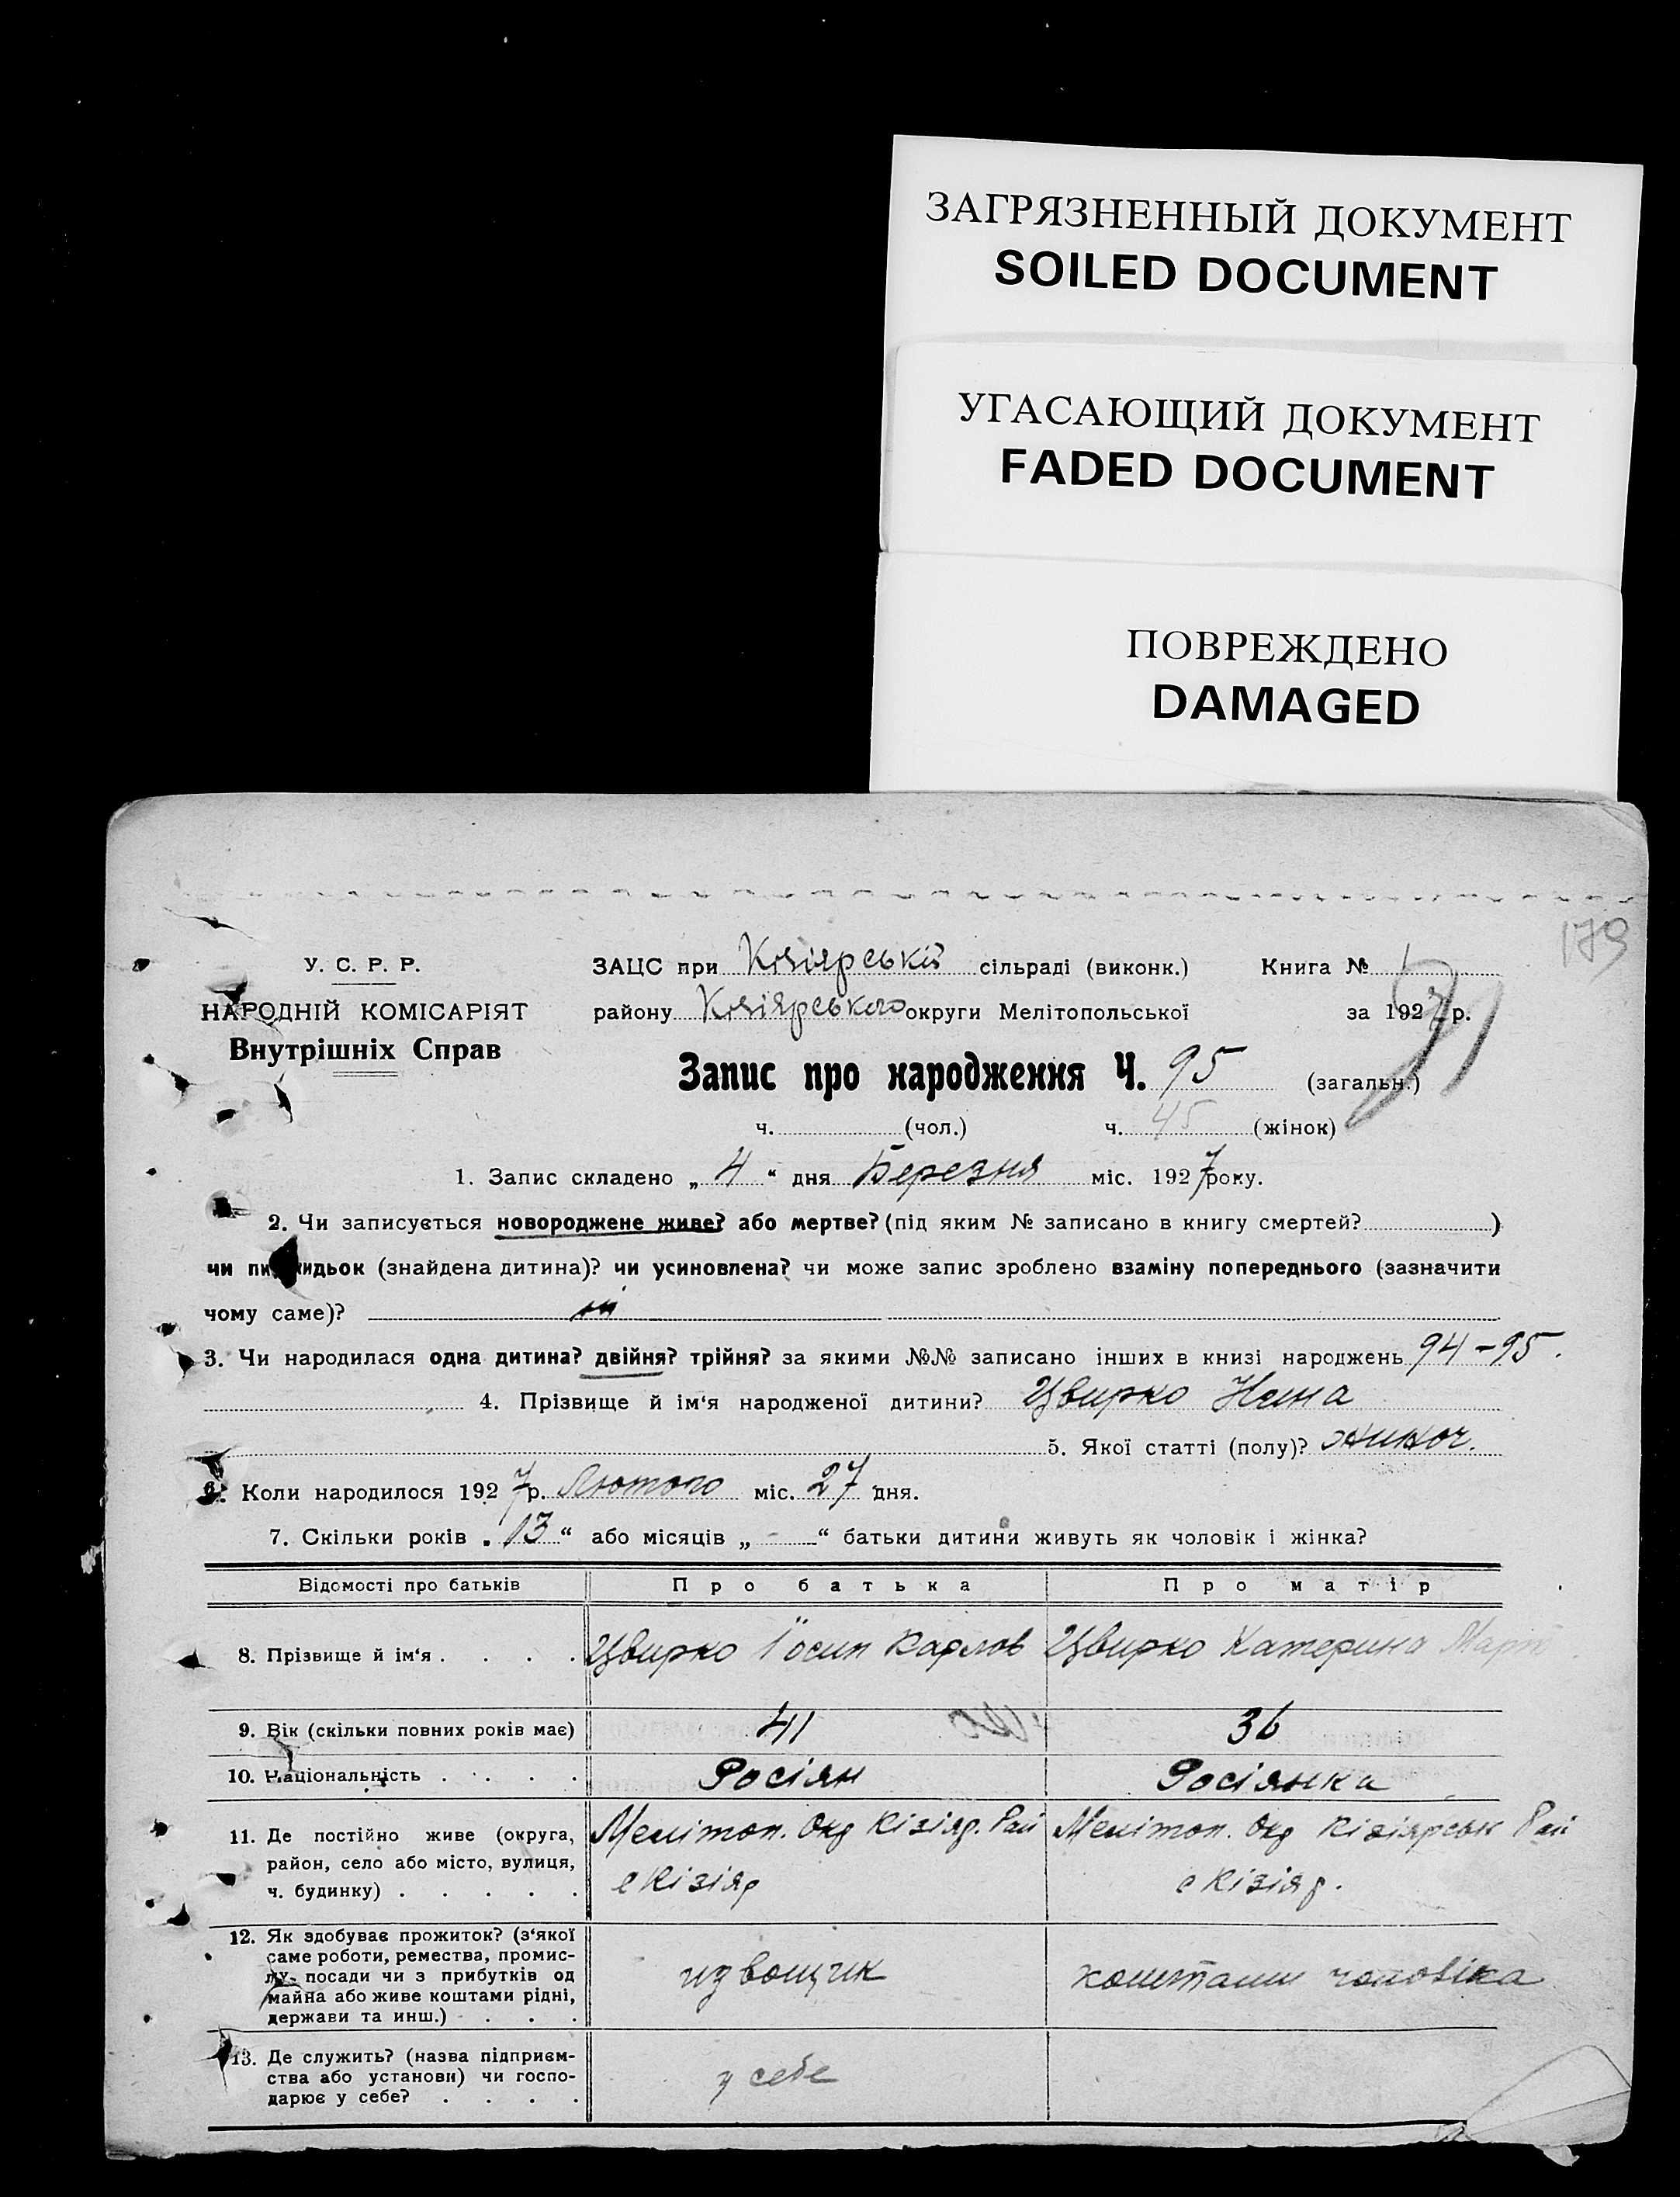 ЗАГРЯЗНЕННЫЙ ДОКУМЕНТ
SOILED DOCUMENT
УГАСАЮЩИЙ ДОКУМЕНТ
FADED DOCUMENT
ПОВРЕЖДЕНО
DAMAGED
179
У. С. Р. Р.
НАРОДНІЙ КОМІСАРІЯТ
Внутрішніх Справ
ЗАЦС при Кізіярській сільраді (виконк.) Книга № 1
району Кізіярського округи Мелітопольської за 1927 р.
Запис про народження Ч. 95 (загальн.)
ч. (чол.) ч. 45 (жінок)
1. Запис складено „ 4 “ дня Березня міс. 1927 року.
2. Чи записується новороджене живе? або мертве? (під яким № записано в книгу смертей? )
чи підкидьок (знайдена дитина)? чи усиновлена? чи може запис зроблено взаміну попереднього (зазначити
чому саме)? ні
3. Чи народилася одна дитина? двійня? трійня? за якими №№ записано інших в книзі народжень 94-95.
4. Прізвище й ім‘я народженої дитини? Цвирко Нина
5. Якої статті (полу)? жиноч.
6. Коли народилося 1927 р. Лютого міс. 27 дня.
7. Скільки років „ 13 “ або місяців „ - “ батьки дитини живуть як чоловік і жінка?
Відомості про батьків Про батька Про матір
8. Прізвище й ім‘я . . . . Цвирко Йосип Карлов Цвирко Катерина Март
9. Вік (скільки повних років має) 41 36
10. Національність . . . . Росіян Росіянка
11. Де постійно живе (округа,
район, село або місто, вулиця,
ч. будинку) . . . . .
Мелітоп. Окр Кізіяр. Рай
с Кізіяр
Мелітоп. Окр Кізіярськ Рай
с Кізіяр.
12. Як здобуває прожиток? (з‘якої
саме роботи, ремества, промис-
лу, посади чи з прибутків од
майна або живе коштами рідні,
держави та инш.) . . .
извощик
коштами чоловіка
13. Де служить? (назва підприєм-
ства або установи) чи госпо-
дарює у себе? . . . .
у себе